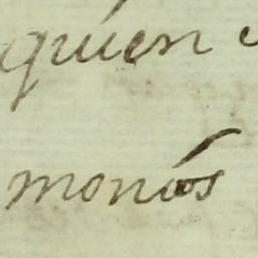 quien
monios